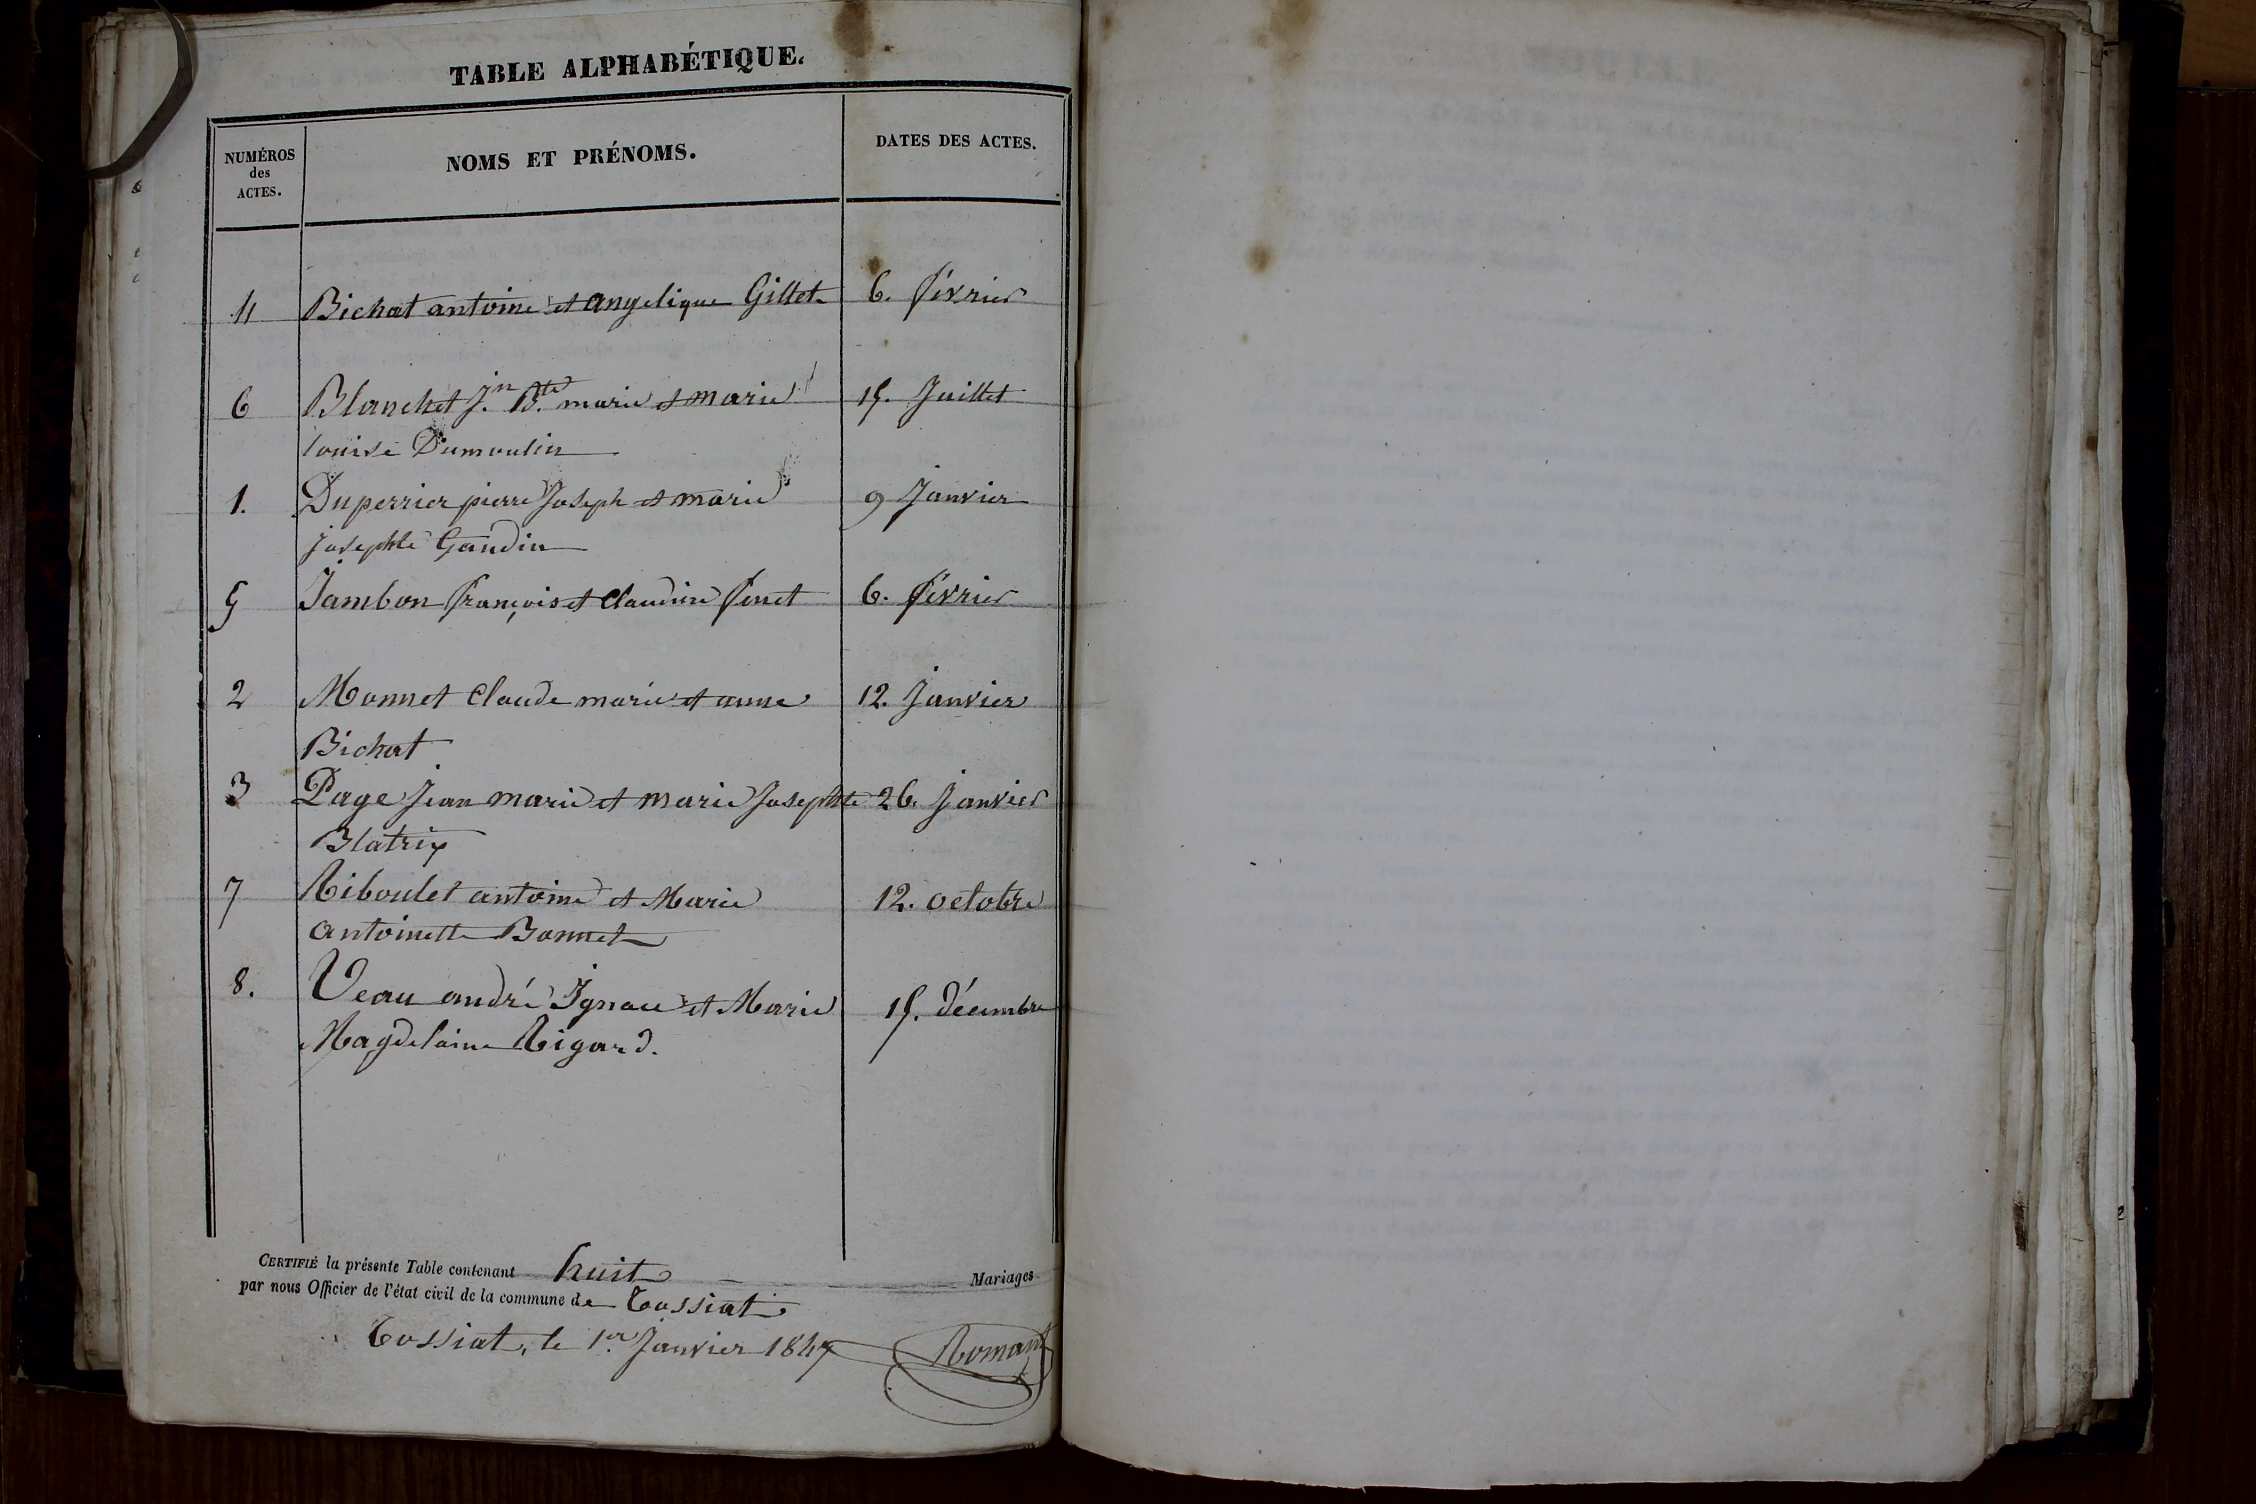 TABLE ALPHABÉTIQUE.
NUMÉROS
des
ACTES.
NOMS ET PRÉNOMS.
DATES DES ACTES.
4 Bichat antoine et angelique Gillet 6. février
6 Blanchet Jn. Bte. marie et marie 15. Juillet
louise Dumoulin
1. Duperrier pierre Joseph et marie 9 Janvier
Josephte Gaudin
5 Jambon françois et Claudine 6. février
2 Monnet Claude marie et anne 12. Janvier
Bichat
3 Page Jean marie et marie Josephte 26. janvier
Blatrix
7 Riboulet antoine et Marie 12. octobre
antoinette Bonnet
8. Veau andré Ignace et Marie 15. décembre
Magdelaine Rigard.
CERTIFIÉ la présente Table contenant huit Mariages
par nous Officier de l'état civil de la commune de Tossiat
Tossiat, le 1er. Janvier 1847
Romant